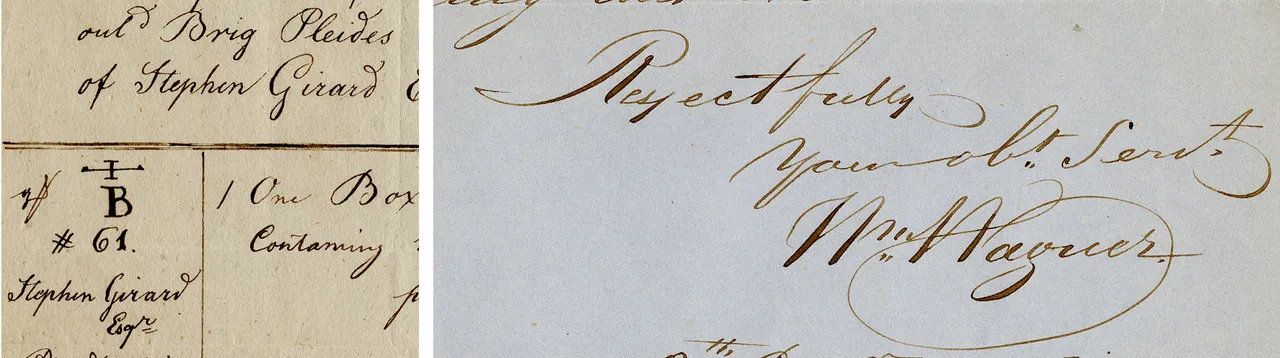 outd Brig Pleides
of Stephen Girard
I
B
# 61.
Stephen Girard
Esqr
1 One Box
Containing
Respectfully
Your obt. Servt.
Wm. Wagner.
th